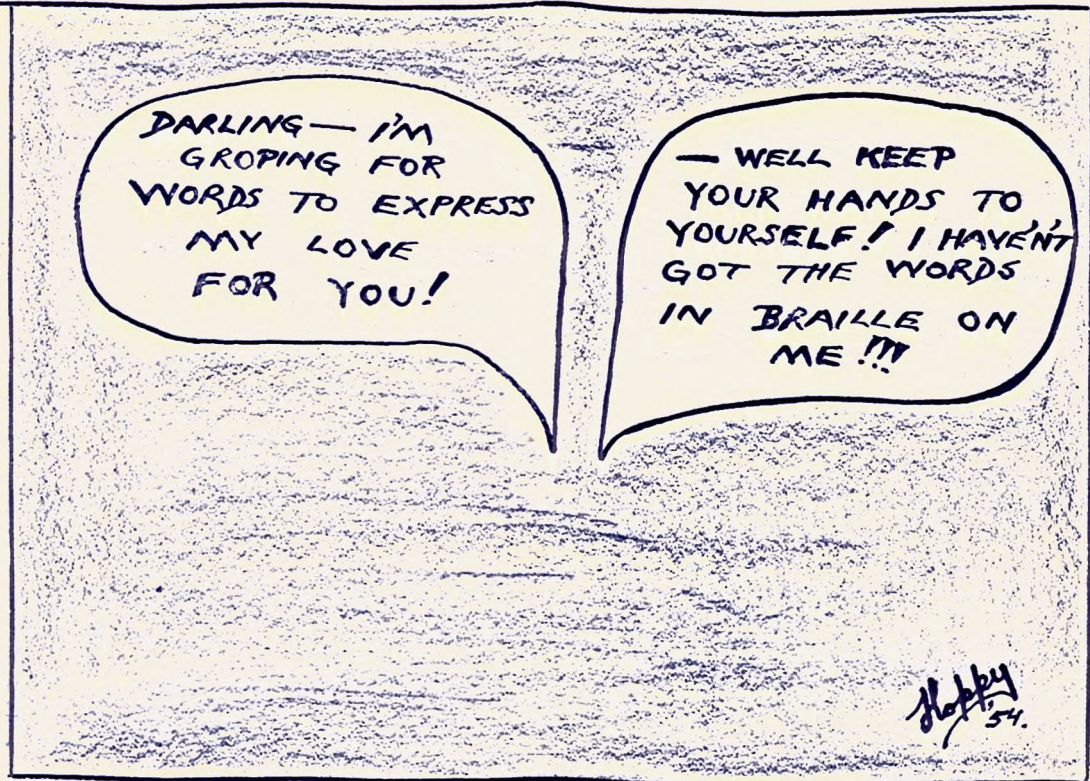 DARLING — I'M
GROPING FOR
WORDS TO EXPRESS
MY LOVE
FOR YOU!
— WELL KEEP
YOUR HANDS TO
YOURSELF! I HAVE'N'T
GOT THE WORDS
IN BRAILLE ON
ME!!!
Hoppy
'54.